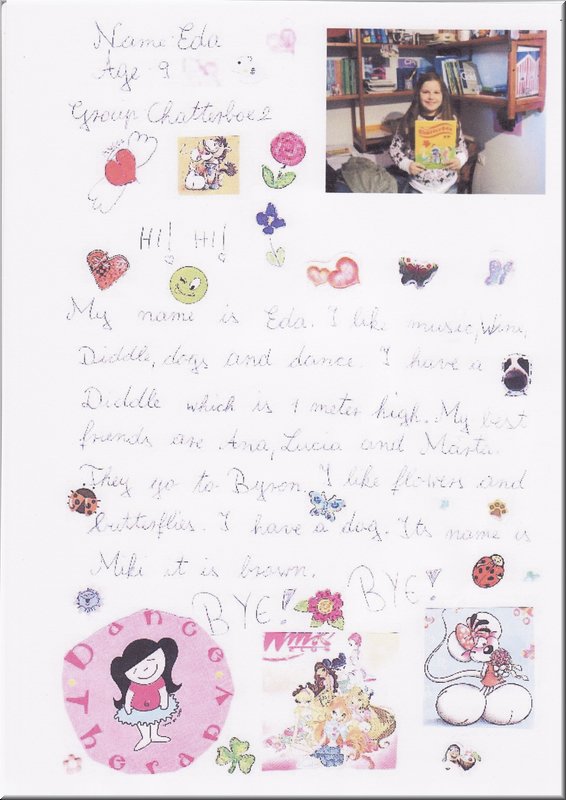 Name Eda
Age 9
Group Chatterbox 2
HI! HI!
My name is Eda. I like music, Winx,
Diddle, dogs and dance. I have a
Diddle which is 1 meter high. My best
friends are Ana, Lucia and Marta.
They go to Byron. I like flowers and
butterflies. I have a dog. Its name is
Miki it is brown.
BYE! BYE!
Dance
Therapy
WINX
CLUB